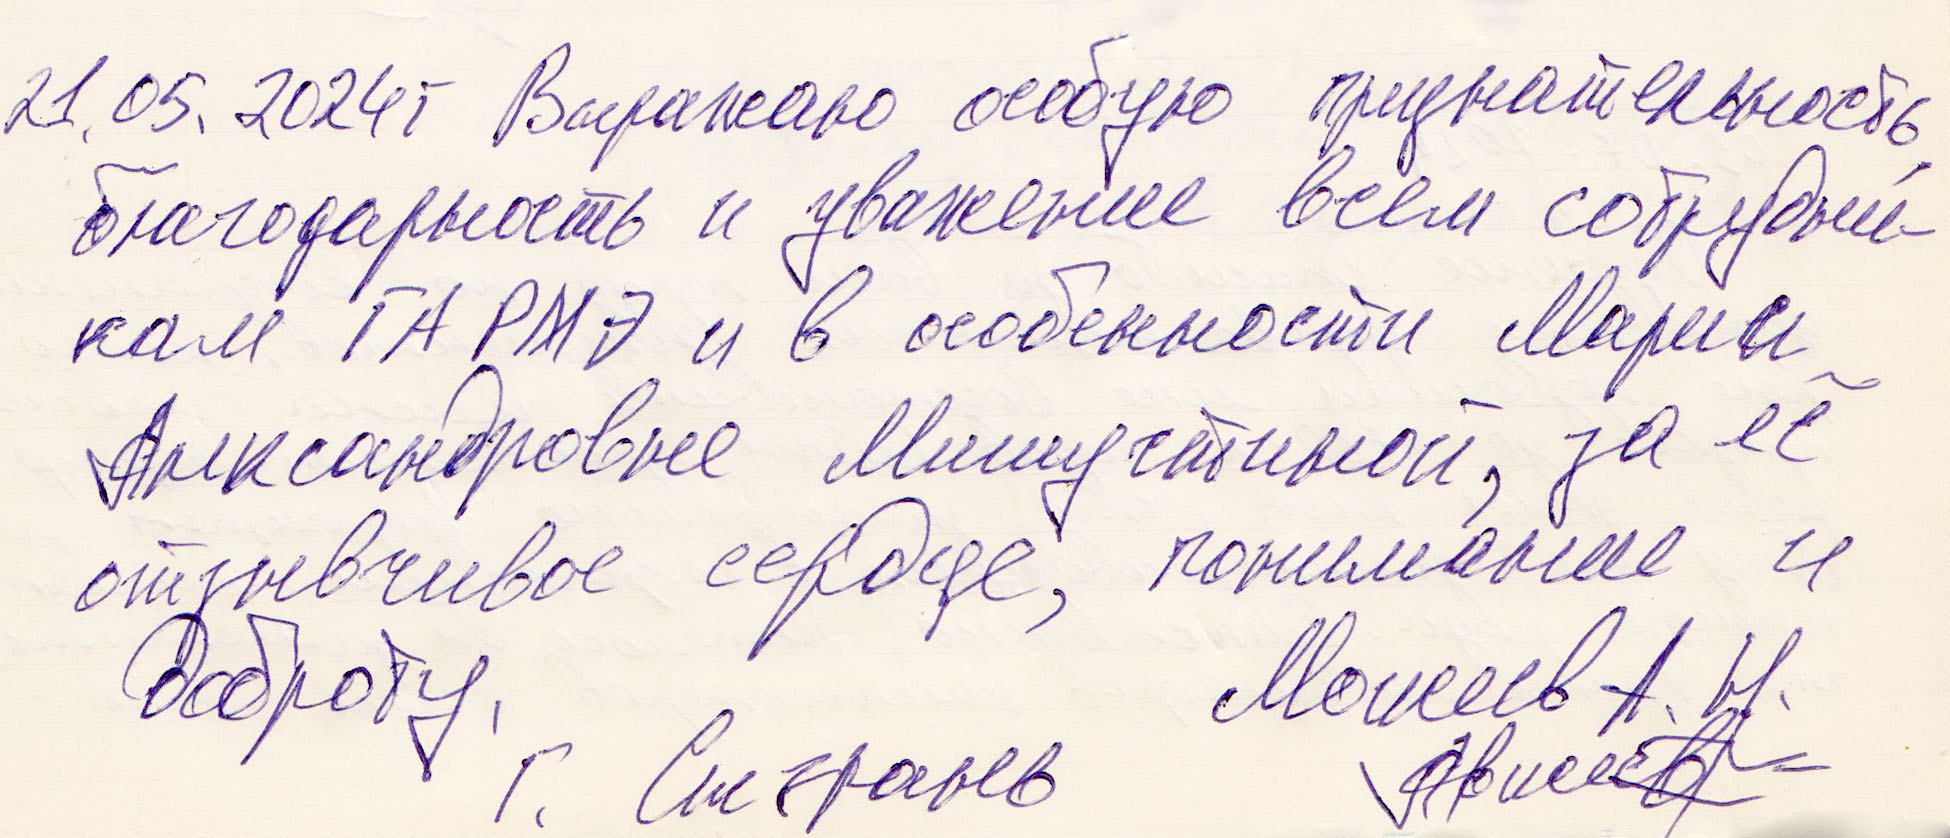 21.05.2024г Выражаю особую признательность,
благодарность и уважение всем сотрудни-
кам ГАРМЭ и в особенности Марии
Александровне Мишустиной, за её
отзывчивое сердце, понимание и
доброту.
Моисеев А. Н.
г. Сызрань